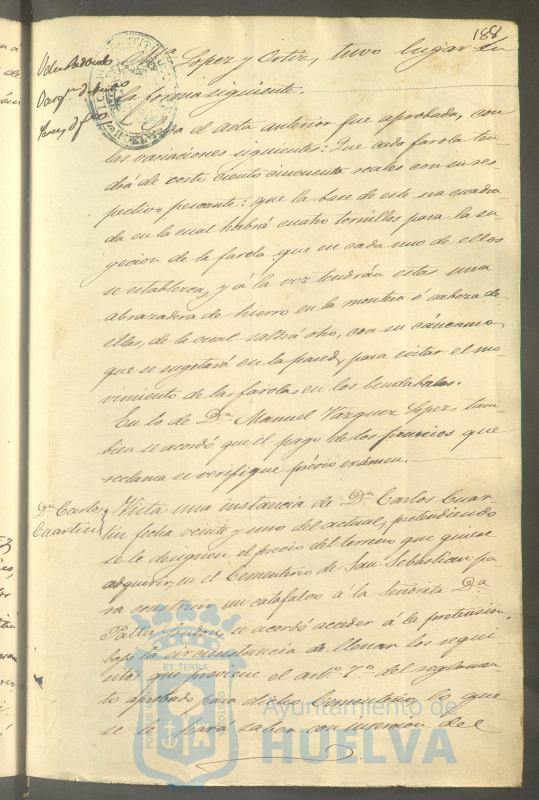 188
Lopez y Ortiz, tuvo lugar en
la forma siguiente.
el acta anterior fue aprobada, con
las variaciones siguientes: Que cada farola ten-
drá de costo ciento cincuenta reales con su res-
pectivo pescante: que la base de este sea cuadra-
da en la cual habrá cuatro tornillos para la su-
gecion de la farola que en cada uno de ellos
se establezca, y á la vez tendrán estas una
abrazadera de hierro en la montera ó cabeza de
ellas, de la cual saldrá otro, con su cáncamo,
que se sugetará en la pared, para evitar el mo-
vimiento de las farolas en los bendabales.
En lo de Dn. Manuel Vazquez Lopez, tam-
bien se acordó que el pago de los premios que
reclama se verifique prévio exámen.
Dn. Carlos
Cuartin
Vista una instancia de Dn. Carlos Cuar-
tin fecha veinte y uno del actual, pretendiendo
se le designen el precio del terreno que quiere
adquirir, en el Cementerio de San Sebastian pa-
ra construir un catafalco á la Señorita Da.
se acordó acceder á la pretension,
bajo la circunstancia de llenar los requi-
sitos que previene el artº. 7º. del reglamen-
to aprobado para dicho Cementerio, lo que
se le hará saber con insercion del
Ayuntamiento de
HUELVA